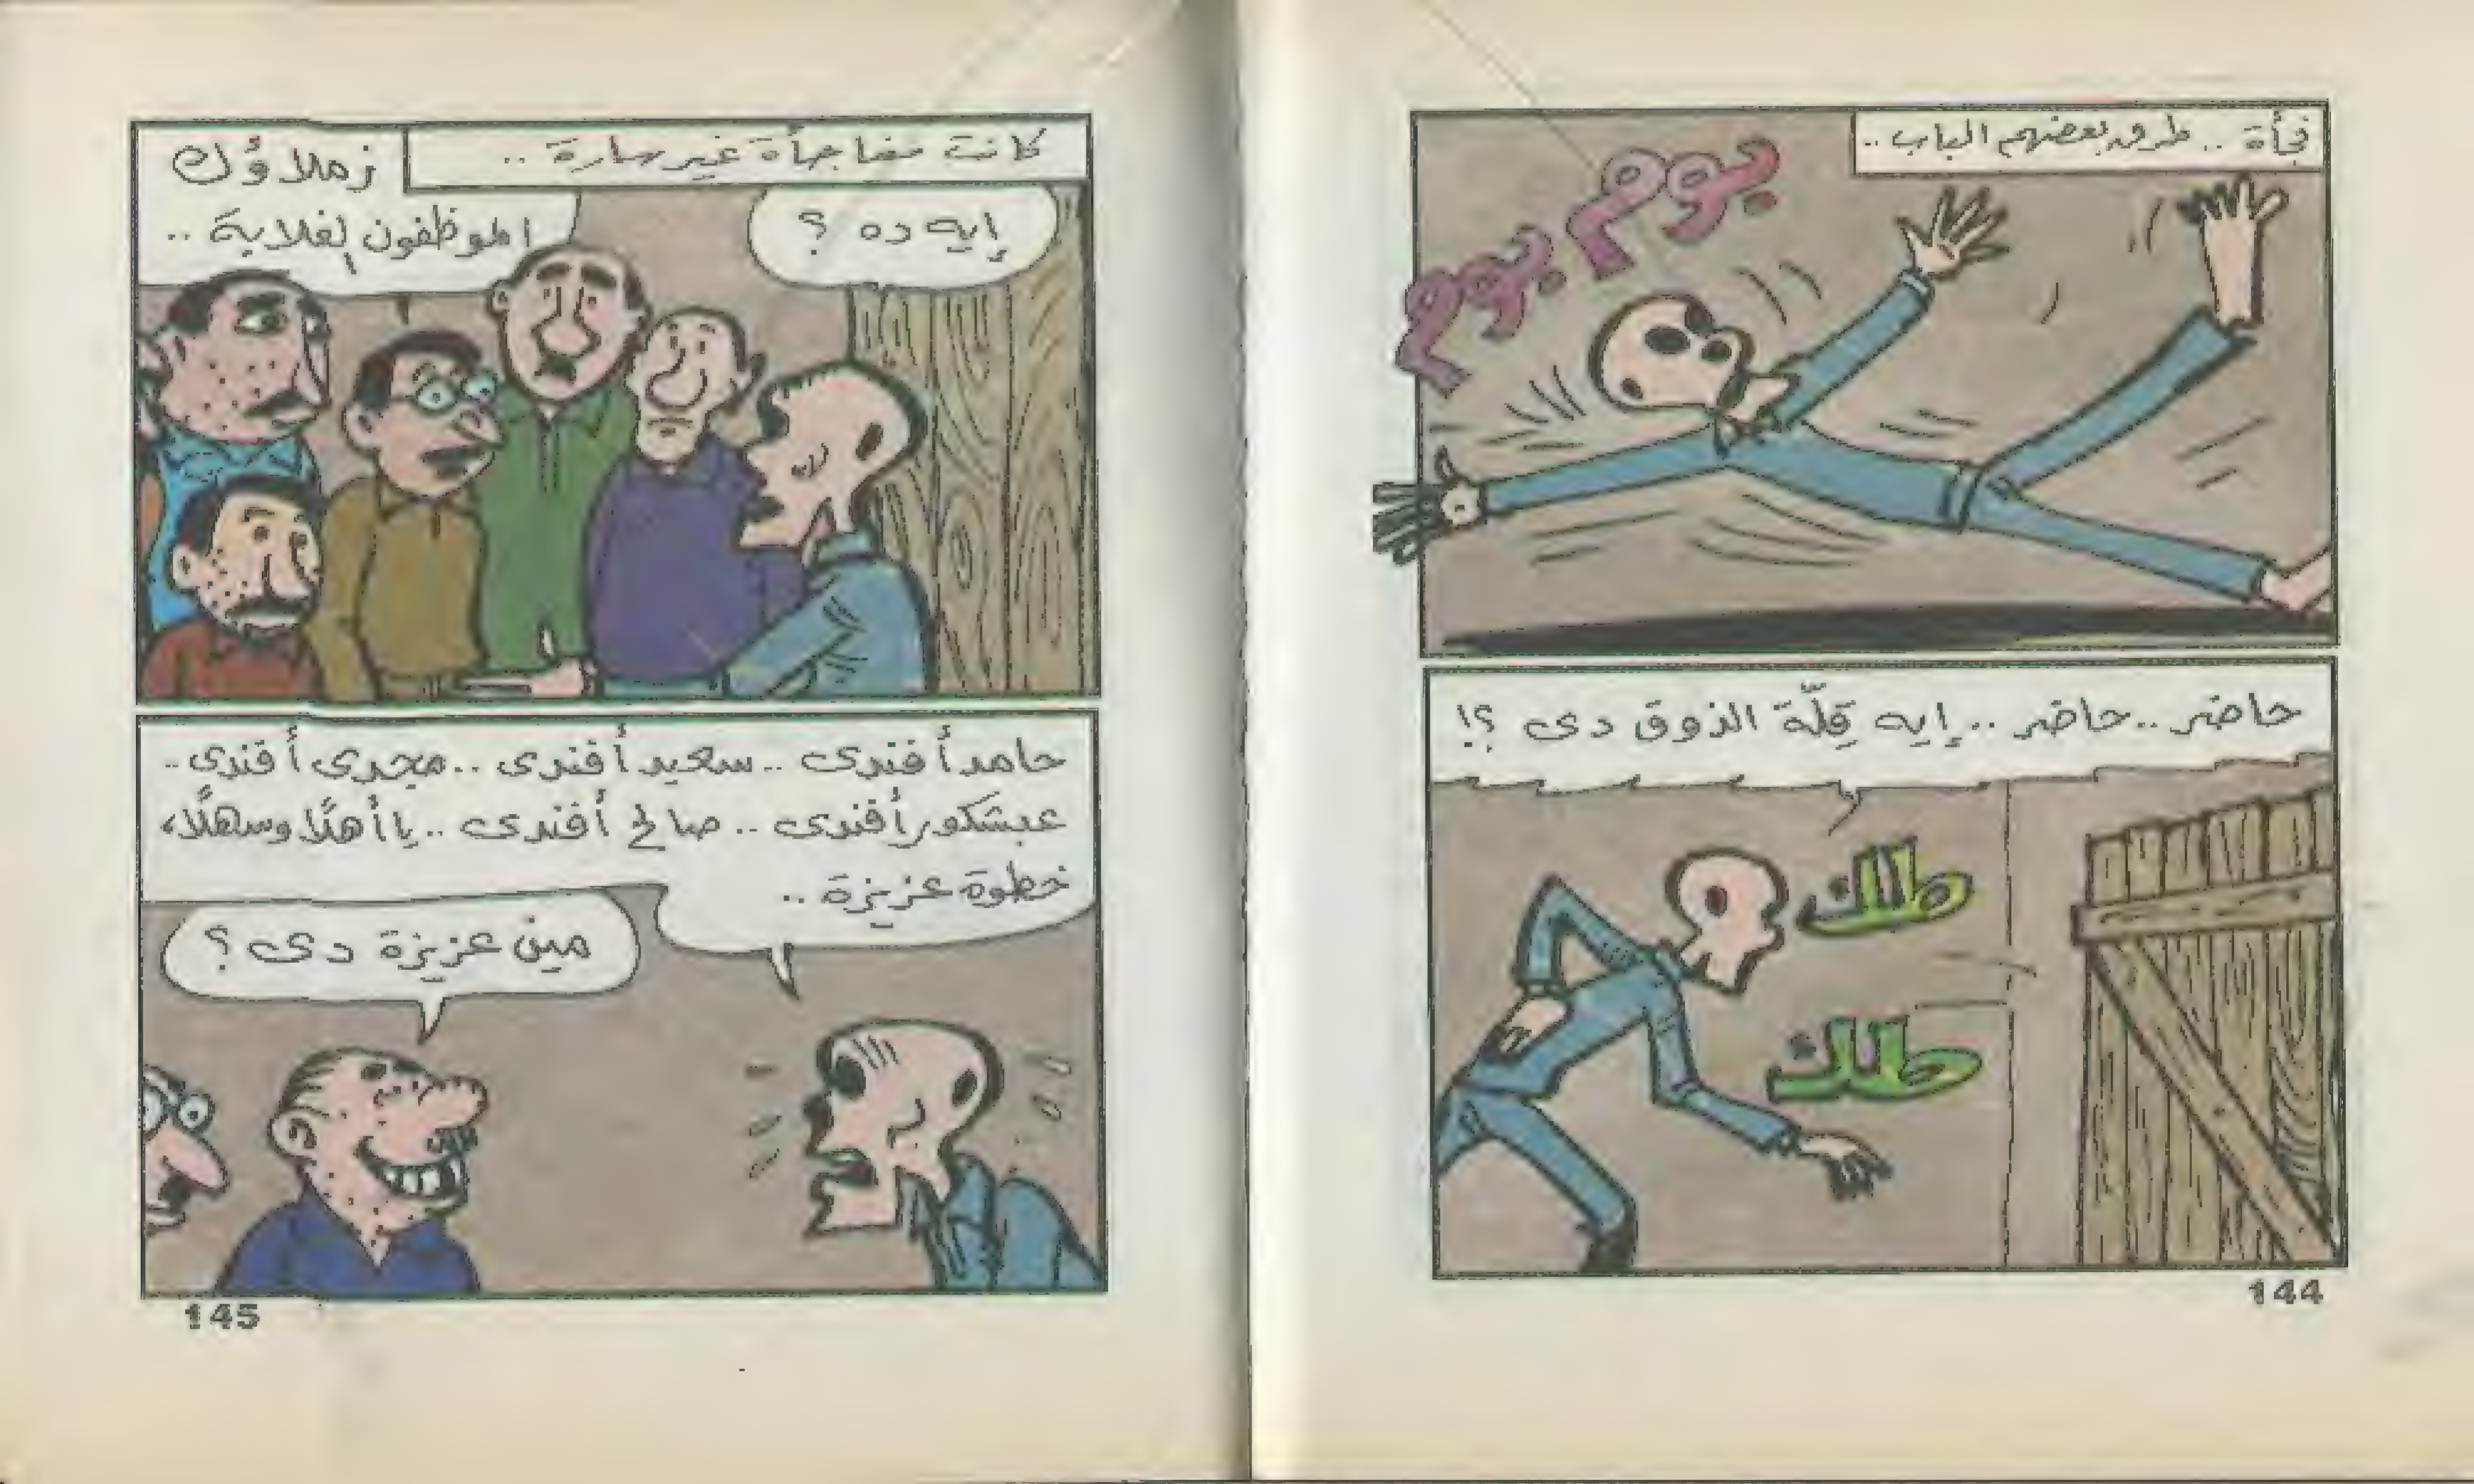 فجأة .. طرق بعضهم الباب ..
بوم بوم
حاضر .. حاضر .. إيه قِلّة الذوق دى ؟!
طك
طك
144
كانت مفاجأة غير سارة ..
إيه ده ؟
زملاؤك
الموظفون لغلابة ..
حامد أفندى .. سعيد أفندى .. مجدى أفندى ..
عبشكور أفندى .. صالح أفندى .. يا أهلًا وسهلًا،
خطوة عزيزة ..
مين عزيزة دى ؟
145